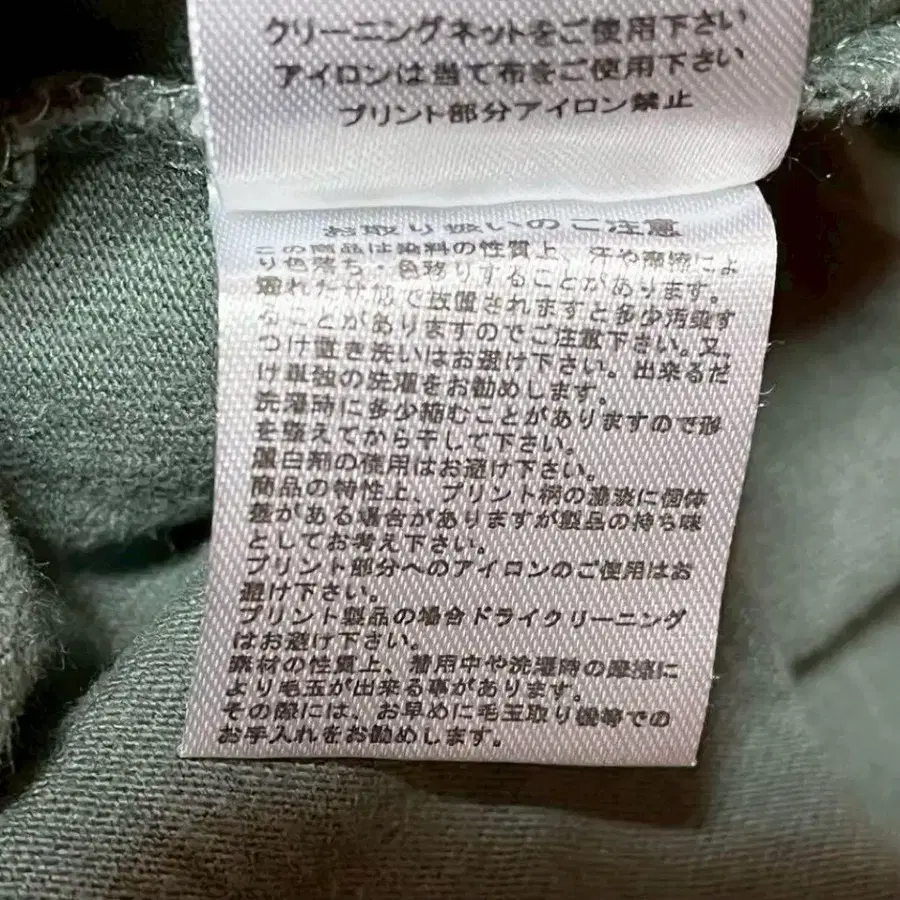 クリーニングネットをご使用下さい
アイロンは当て布をご使用下さい
プリント部分アイロン禁止
お取り扱いのご注意
この商品は染料の性質上、汗や摩擦によ
り色落ち・色移りすることがあります。
濡れた状態で放置されますと多少汚染す
ることがありますのでご注意下さい。又、
つけ置き洗いはお避け下さい。出来るだ
け単独の洗濯をお勧めします。
洗濯時に多少縮むことがありますので形
を整えてから干して下さい。
蛍白剤の使用はお避け下さい。
商品の特性上、プリント柄の濃淡に個体
差がある場合がありますが製品の持ち味
としてお考え下さい。
プリント部分へのアイロンのご使用はお
避け下さい。
プリント製品の場合ドライクリーニング
はお避け下さい。
素材の性質上、着用中や洗濯時の摩擦に
より毛玉が出来る事があります。
その際には、お早めに毛玉取り機等での
お手入れをお勧めします。